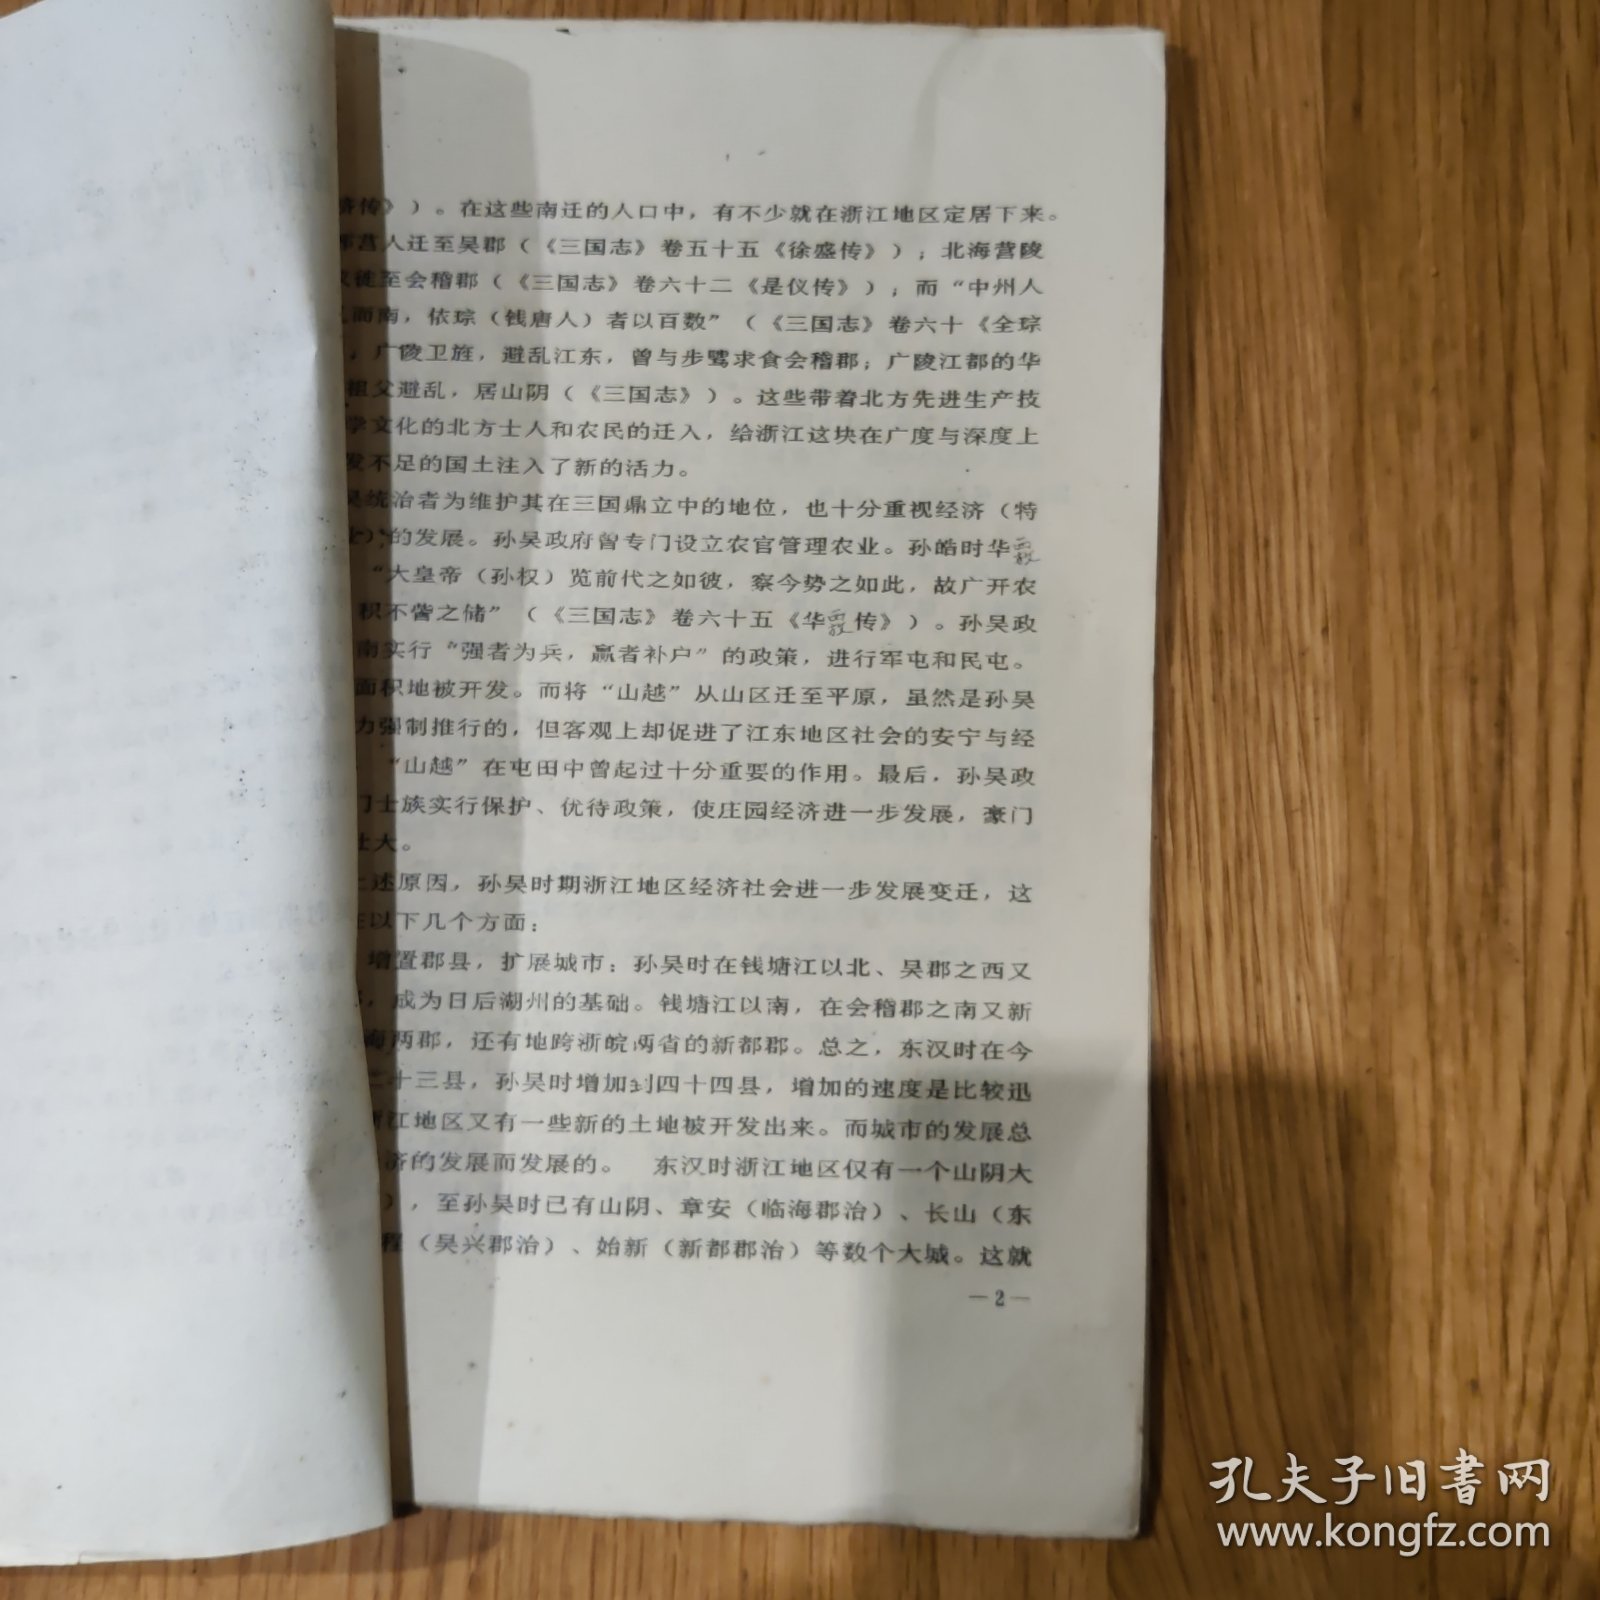 传》）。在这些南迁的人口中，有不少就在浙江地区定居下来。
营人迁至吴郡（《三国志》卷五十五《徐盛传》）；北海营陵
徙至会稽郡（《三国志》卷六十二《是仪传》）；而“中州人
而南，依琮（钱唐人）者以百数”（《三国志》卷六十《全琮
；广陵卫旌，避乱江东，曾与步骘求食会稽郡；广陵江都的华
祖父避乱，居山阴（《三国志》）。这些带着北方先进生产技
学文化的北方士人和农民的迁入，给浙江这块在广度与深度上
发不足的国土注入了新的活力。
吴统治者为维护其在三国鼎立中的地位，也十分重视经济（特
业）的发展。孙吴政府曾专门设立农官管理农业。孙皓时华覈
“大皇帝（孙权）览前代之如彼，察今势之如此，故广开农
积不訾之储”（《三国志》卷六十五《华覈传》）。孙吴政
南实行“强者为兵，羸者补户”的政策，进行军屯和民屯。
面积地被开发。而将“山越”从山区迁至平原，虽然是孙吴
力强制推行的，但客观上却促进了江东地区社会的安宁与经
“山越”在屯田中曾起过十分重要的作用。最后，孙吴政
门士族实行保护、优待政策，使庄园经济进一步发展，豪门
壮大。
上述原因，孙吴时期浙江地区经济社会进一步发展变迁，这
在以下几个方面：
增置郡县，扩展城市：孙吴时在钱塘江以北、吴郡之西又
，成为日后湖州的基础。钱塘江以南，在会稽郡之南又新
海两郡，还有地跨浙皖两省的新都郡。总之，东汉时在今
二十三县，孙吴时增加到四十四县，增加的速度是比较迅
浙江地区又有一些新的土地被开发出来。而城市的发展总
济的发展而发展的。 东汉时浙江地区仅有一个山阴大
），至孙吴时已有山阴、章安（临海郡治）、长山（东
程（吴兴郡治）、始新（新都郡治）等数个大城。这就
—2—
孔夫子旧书网
www.kongfz.com